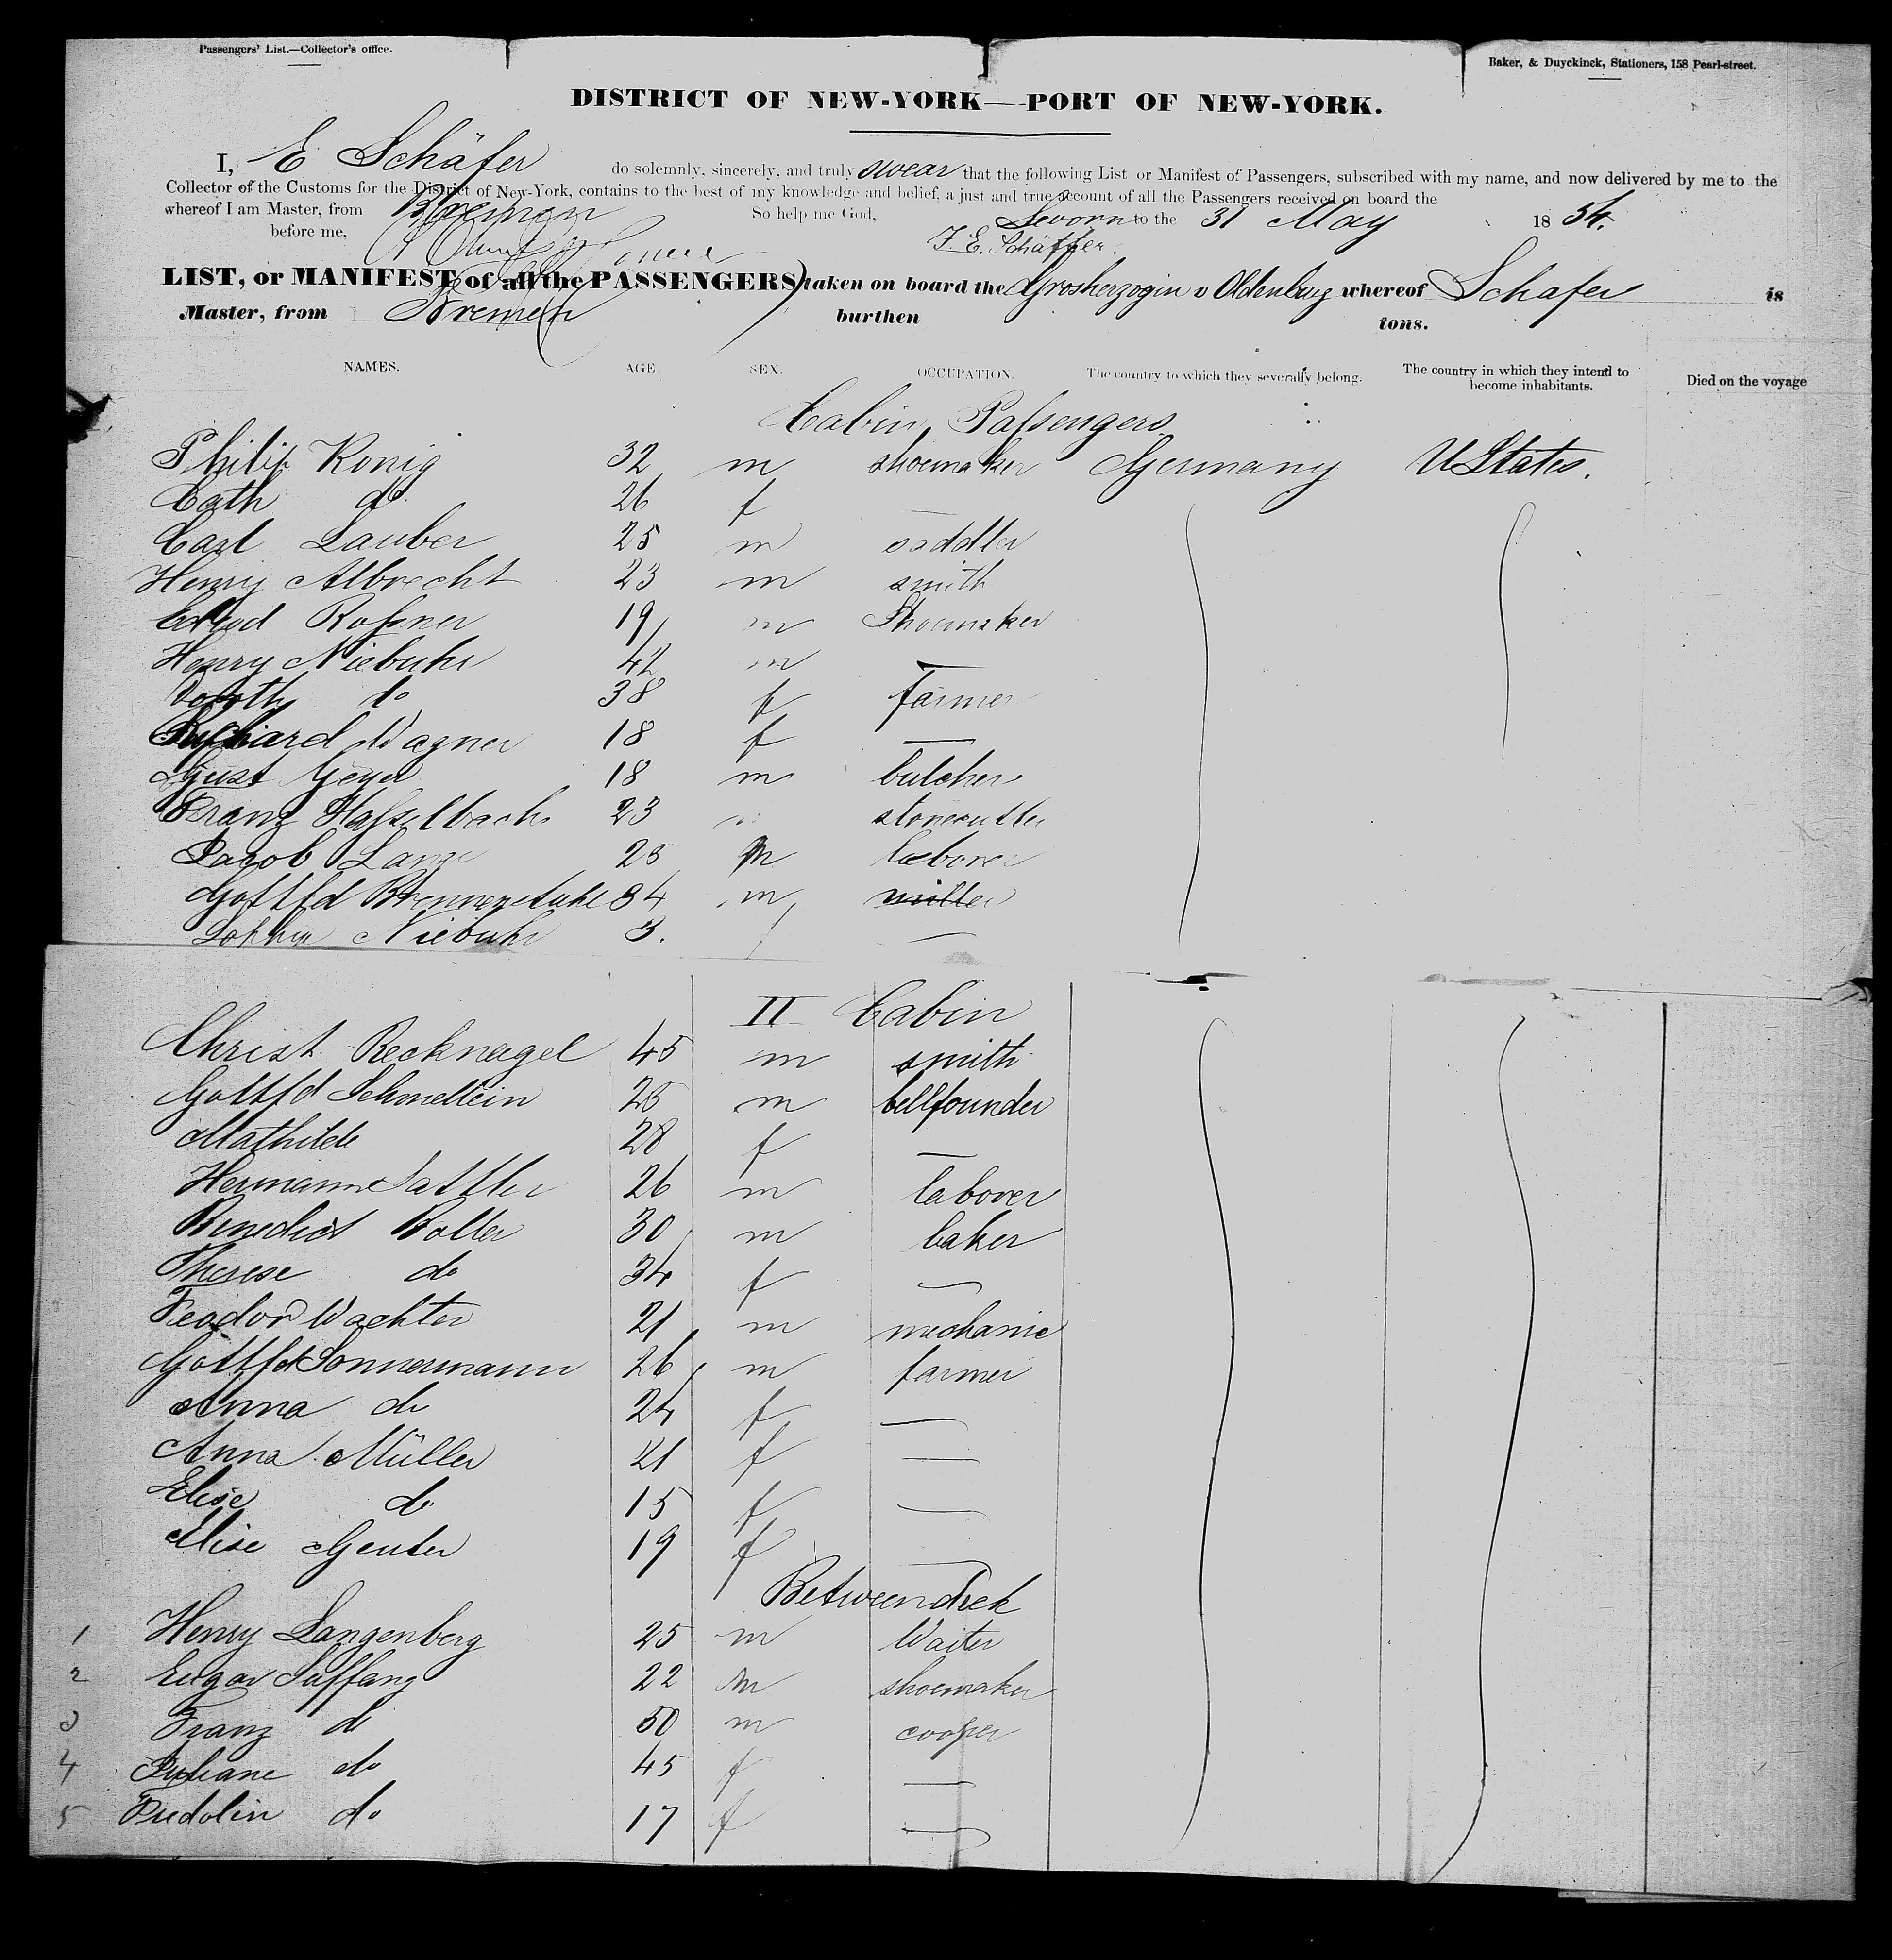 Passengers' List.—Collector's office.
Baker, & Duyckinck, Stationers, 158 Pearl-street.
DISTRICT OF NEW-YORK—PORT OF NEW-YORK.
I, E Schäfer do solemnly, sincerely, and truly swear that the following List or Manifest of Passengers, subscribed with my name, and now delivered by me to the
Collector of the Customs for the District of New-York, contains to the best of my knowledge and belief, a just and true account of all the Passengers received on board the
whereof I am Master, from Bremen So help me God, Sworn to the 31 May 1854.
before me, F. E. Schäffer.
LIST, or MANIFEST of all the PASSENGERS taken on board the Grosherzogin v Oldenburg whereof Schafer is
Master, from Bremen burthen tons.
NAMES. AGE. SEX. OCCUPATION. The country to which they severally belong. The country in which they intend to become inhabitants. Died on the voyage
Cabin Passengers
Philip Konig 32 m shoemaker Germany U States.
Cath do 26 f —
Carl Lauber 25 m saddler
Henry Albrecht 23 m smith
19 m Shoemaker
Henry Niebuhr 42 m —
Doroth do 38 f farmer
Wagner 18 f —
Gust Geyer 18 m butcher
Franz Hasselbach 23 stonecutter
Jacob Lange 25 m laborer
Gottfd Brennenstuhl 34 m miller
Sophia Niebuhr 3. f —
II Cabin
Christ Recknagel 45 m smith
Gottfd Schmellein 25 m bellfounder
Mathilde 28 f —
Hermann Sattler 26 m laborer
Benedict Roller 30 m baker
Therese do 34 f —
Feodor Wachter 21 m mechanic
Gottfd Sonnermann 26 m farmer
Anna do 24 f —
Anna Müller 21 f —
Elise do 15 f —
Elise Genter 19 f —
Betweendeck
1 Henry Langenberg 25 m Waiter
2 Suffang 22 m shoemaker
3 Franz do 50 m cooper
4 Juliane do 45 f —
5 Fridolin do 17 f —